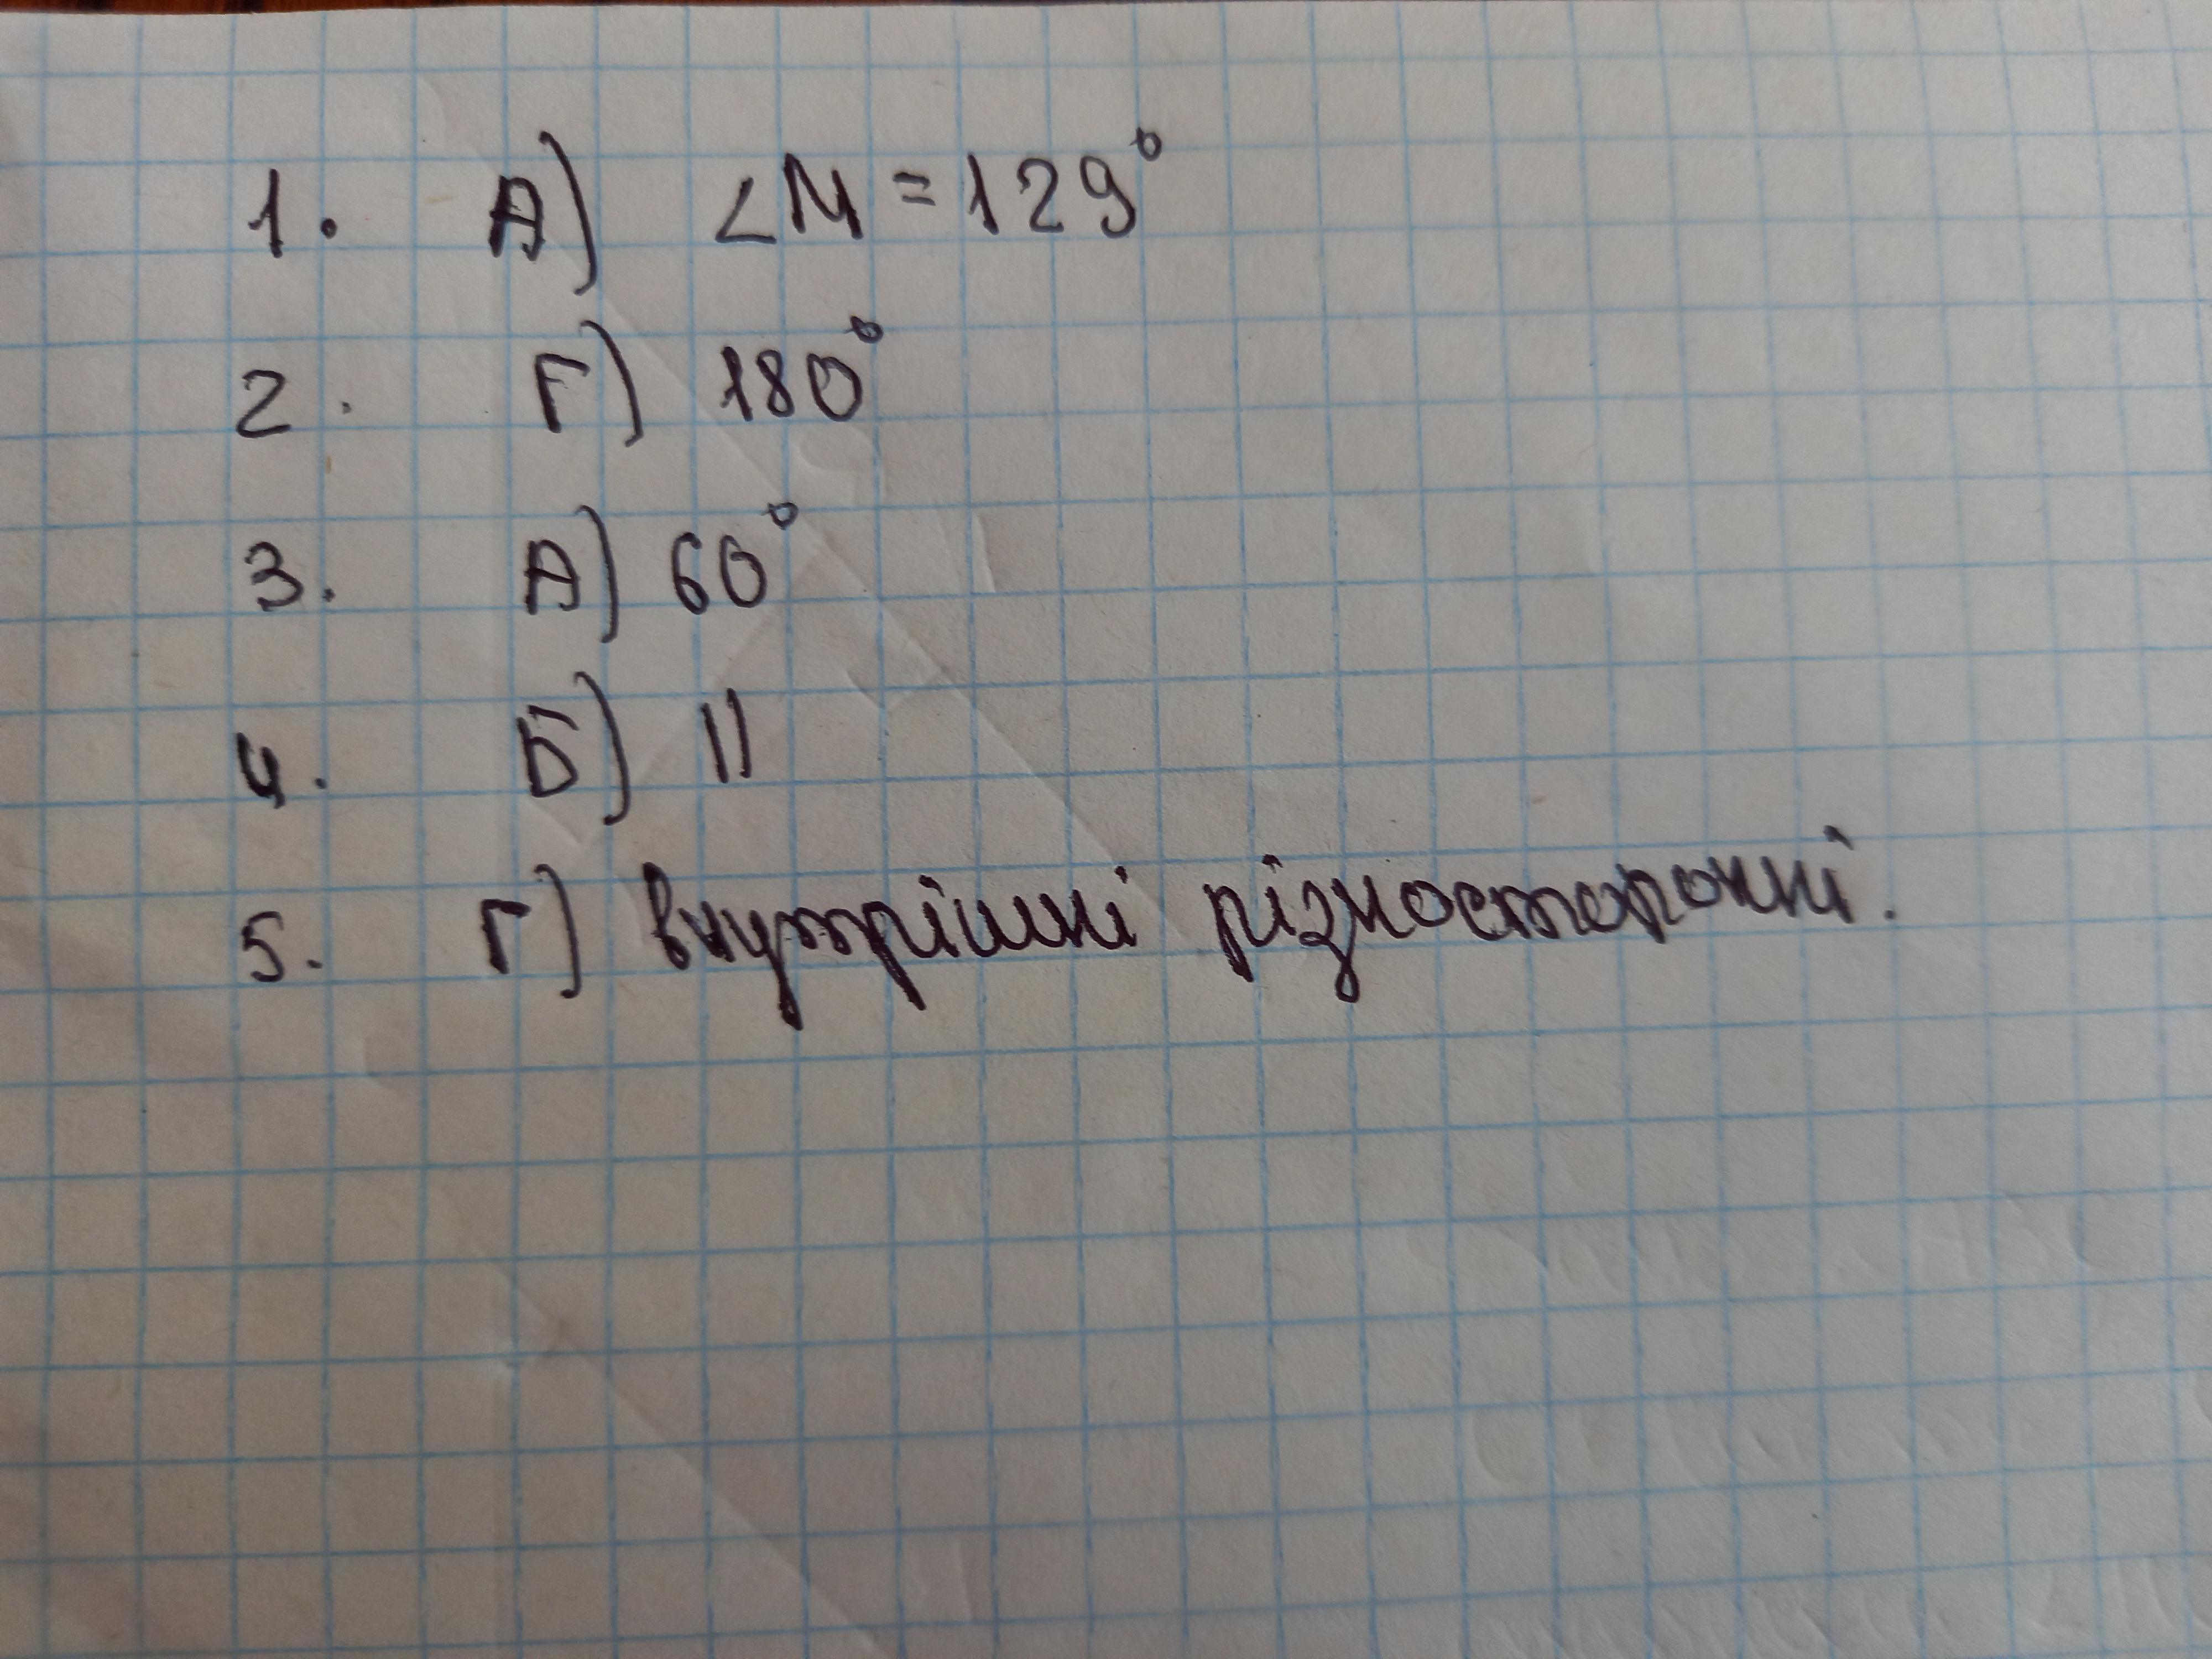 1. А) ∠М = 129°
2. Г) 180°
3. А) 60°
4. Б) ||
5. Г) внутрішні різносторонні.